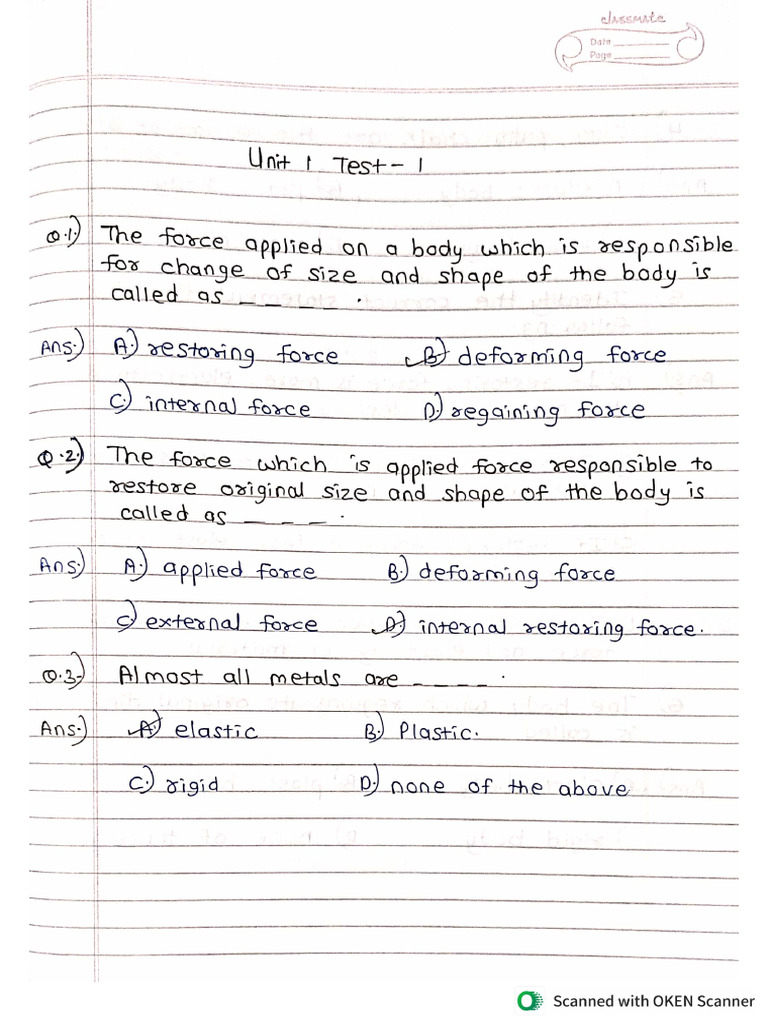 classmate
Date
Page
Unit 1 Test - 1
Q.1.) The force applied on a body which is responsible
for change of size and shape of the body is
called as _ _ _ _ .
Ans.) A.) restoring force B.) deforming force
C.) internal force D.) regaining force
Q.2.) The force which is applied force responsible to
restore original size and shape of the body is
called as _ _ _ .
Ans.) A.) applied force B.) deforming force
C.) external force D.) internal restoring force.
Q.3.) Almost all metals are _ _ _ _ .
Ans.) A.) elastic B.) Plastic.
C.) rigid D.) none of the above
Scanned with OKEN Scanner